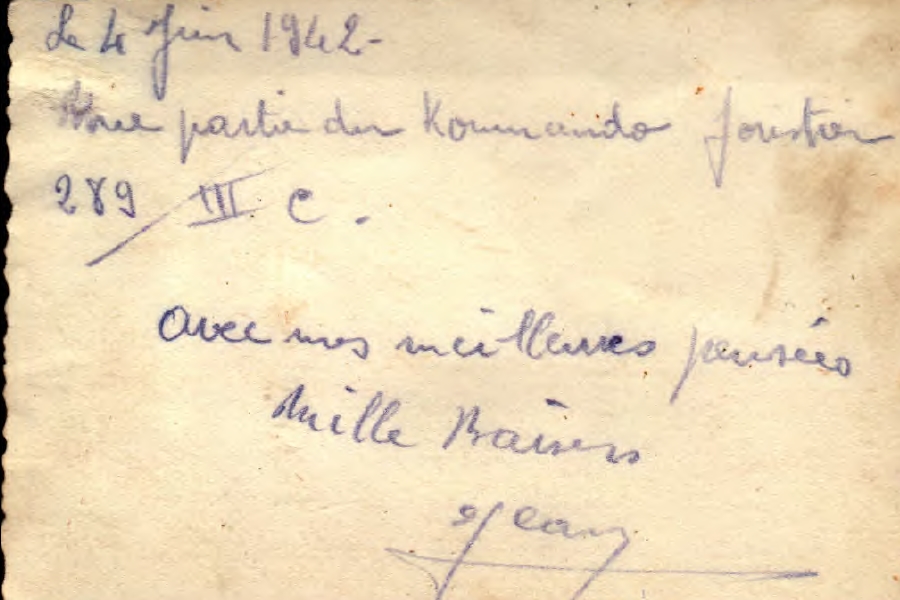 Le 4 Juin 1942-
Une partie du Kommando forestier
289 / III C.
Avec mes meilleures pensées
Mille Baisers
Jean